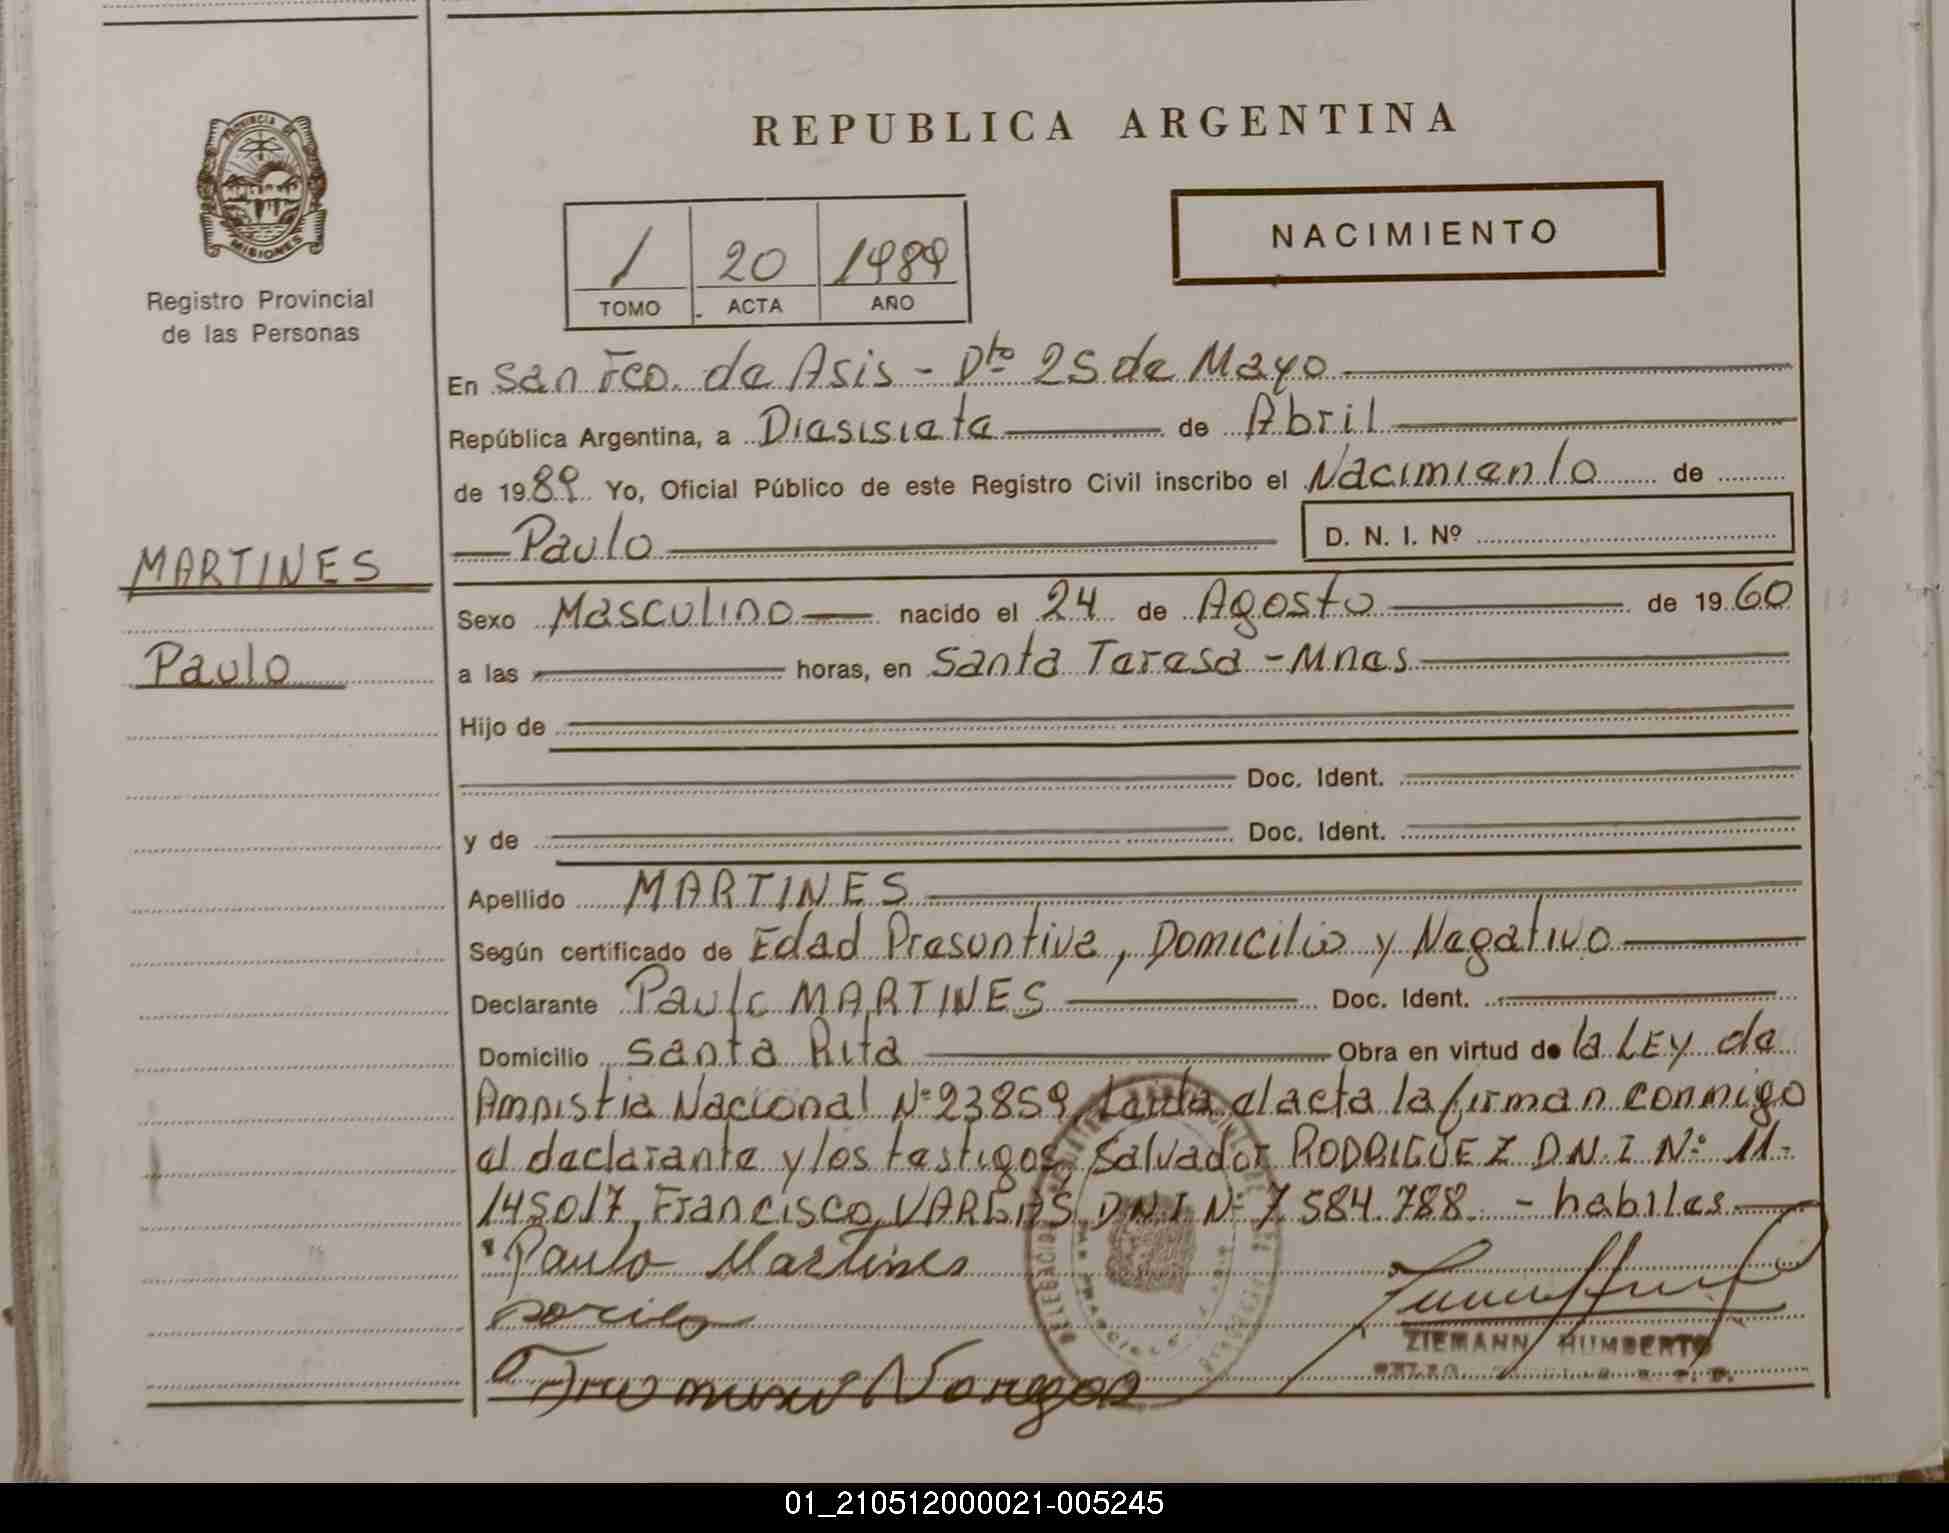 REPUBLICA ARGENTINA
PROVINCIA DE
MISIONES
Registro Provincial
de las Personas
1 20 1989
TOMO ACTA AÑO
NACIMIENTO
En San Fco. de Asis - Dto 25 de Mayo
República Argentina, a Diasisiete de Abril
de 1989 Yo, Oficial Público de este Registro Civil inscribo el Nacimiento de
Paulo D. N. I. Nº
MARTINES
Sexo Masculino nacido el 24 de Agosto de 1960
Paulo
a las horas, en Santa Teresa - Mnes
Hijo de
Doc. Ident.
y de Doc. Ident.
Apellido MARTINES
Según certificado de Edad Presuntiva, Domicilio y Negativo
Declarante Paulo MARTINES Doc. Ident.
Domicilio Santa Rita Obra en virtud de la LEY de
Amnistia Nacional Nº 23859, Leida el acta la firman conmigo
el declarante y los testigos Salvador RODRIGUEZ D.N.I Nº 11.
145017, Francisco VARGAS D.N.I Nº 7.584.788. - habiles
Paulo Martines
ZIEMANN HUMBERTO
01_210512000021-005245